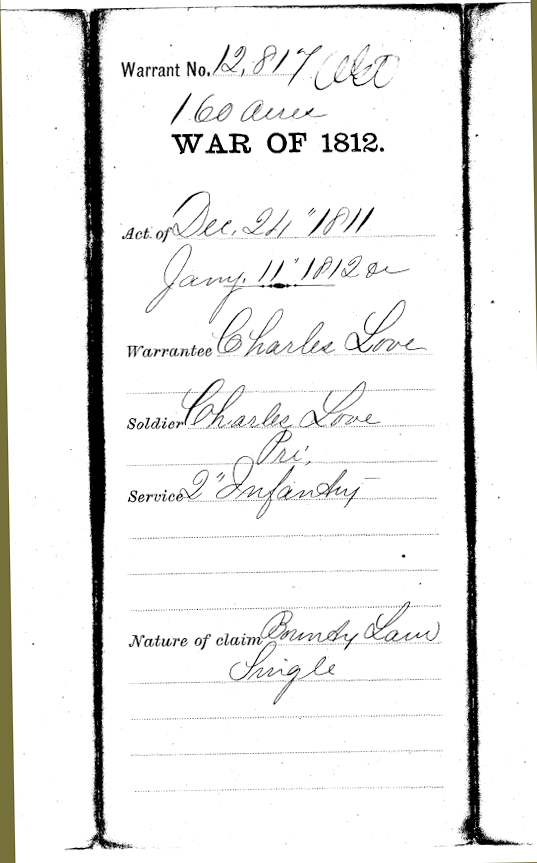 Warrant No. 12,817
160 acres
WAR OF 1812.
Act of Dec. 24" 1811
Jany. 11" 1812 &c
Warrantee Charles Love
Soldier Charles Love
Pri.
Service 2" Infantry
Nature of claim Bounty Land
Single